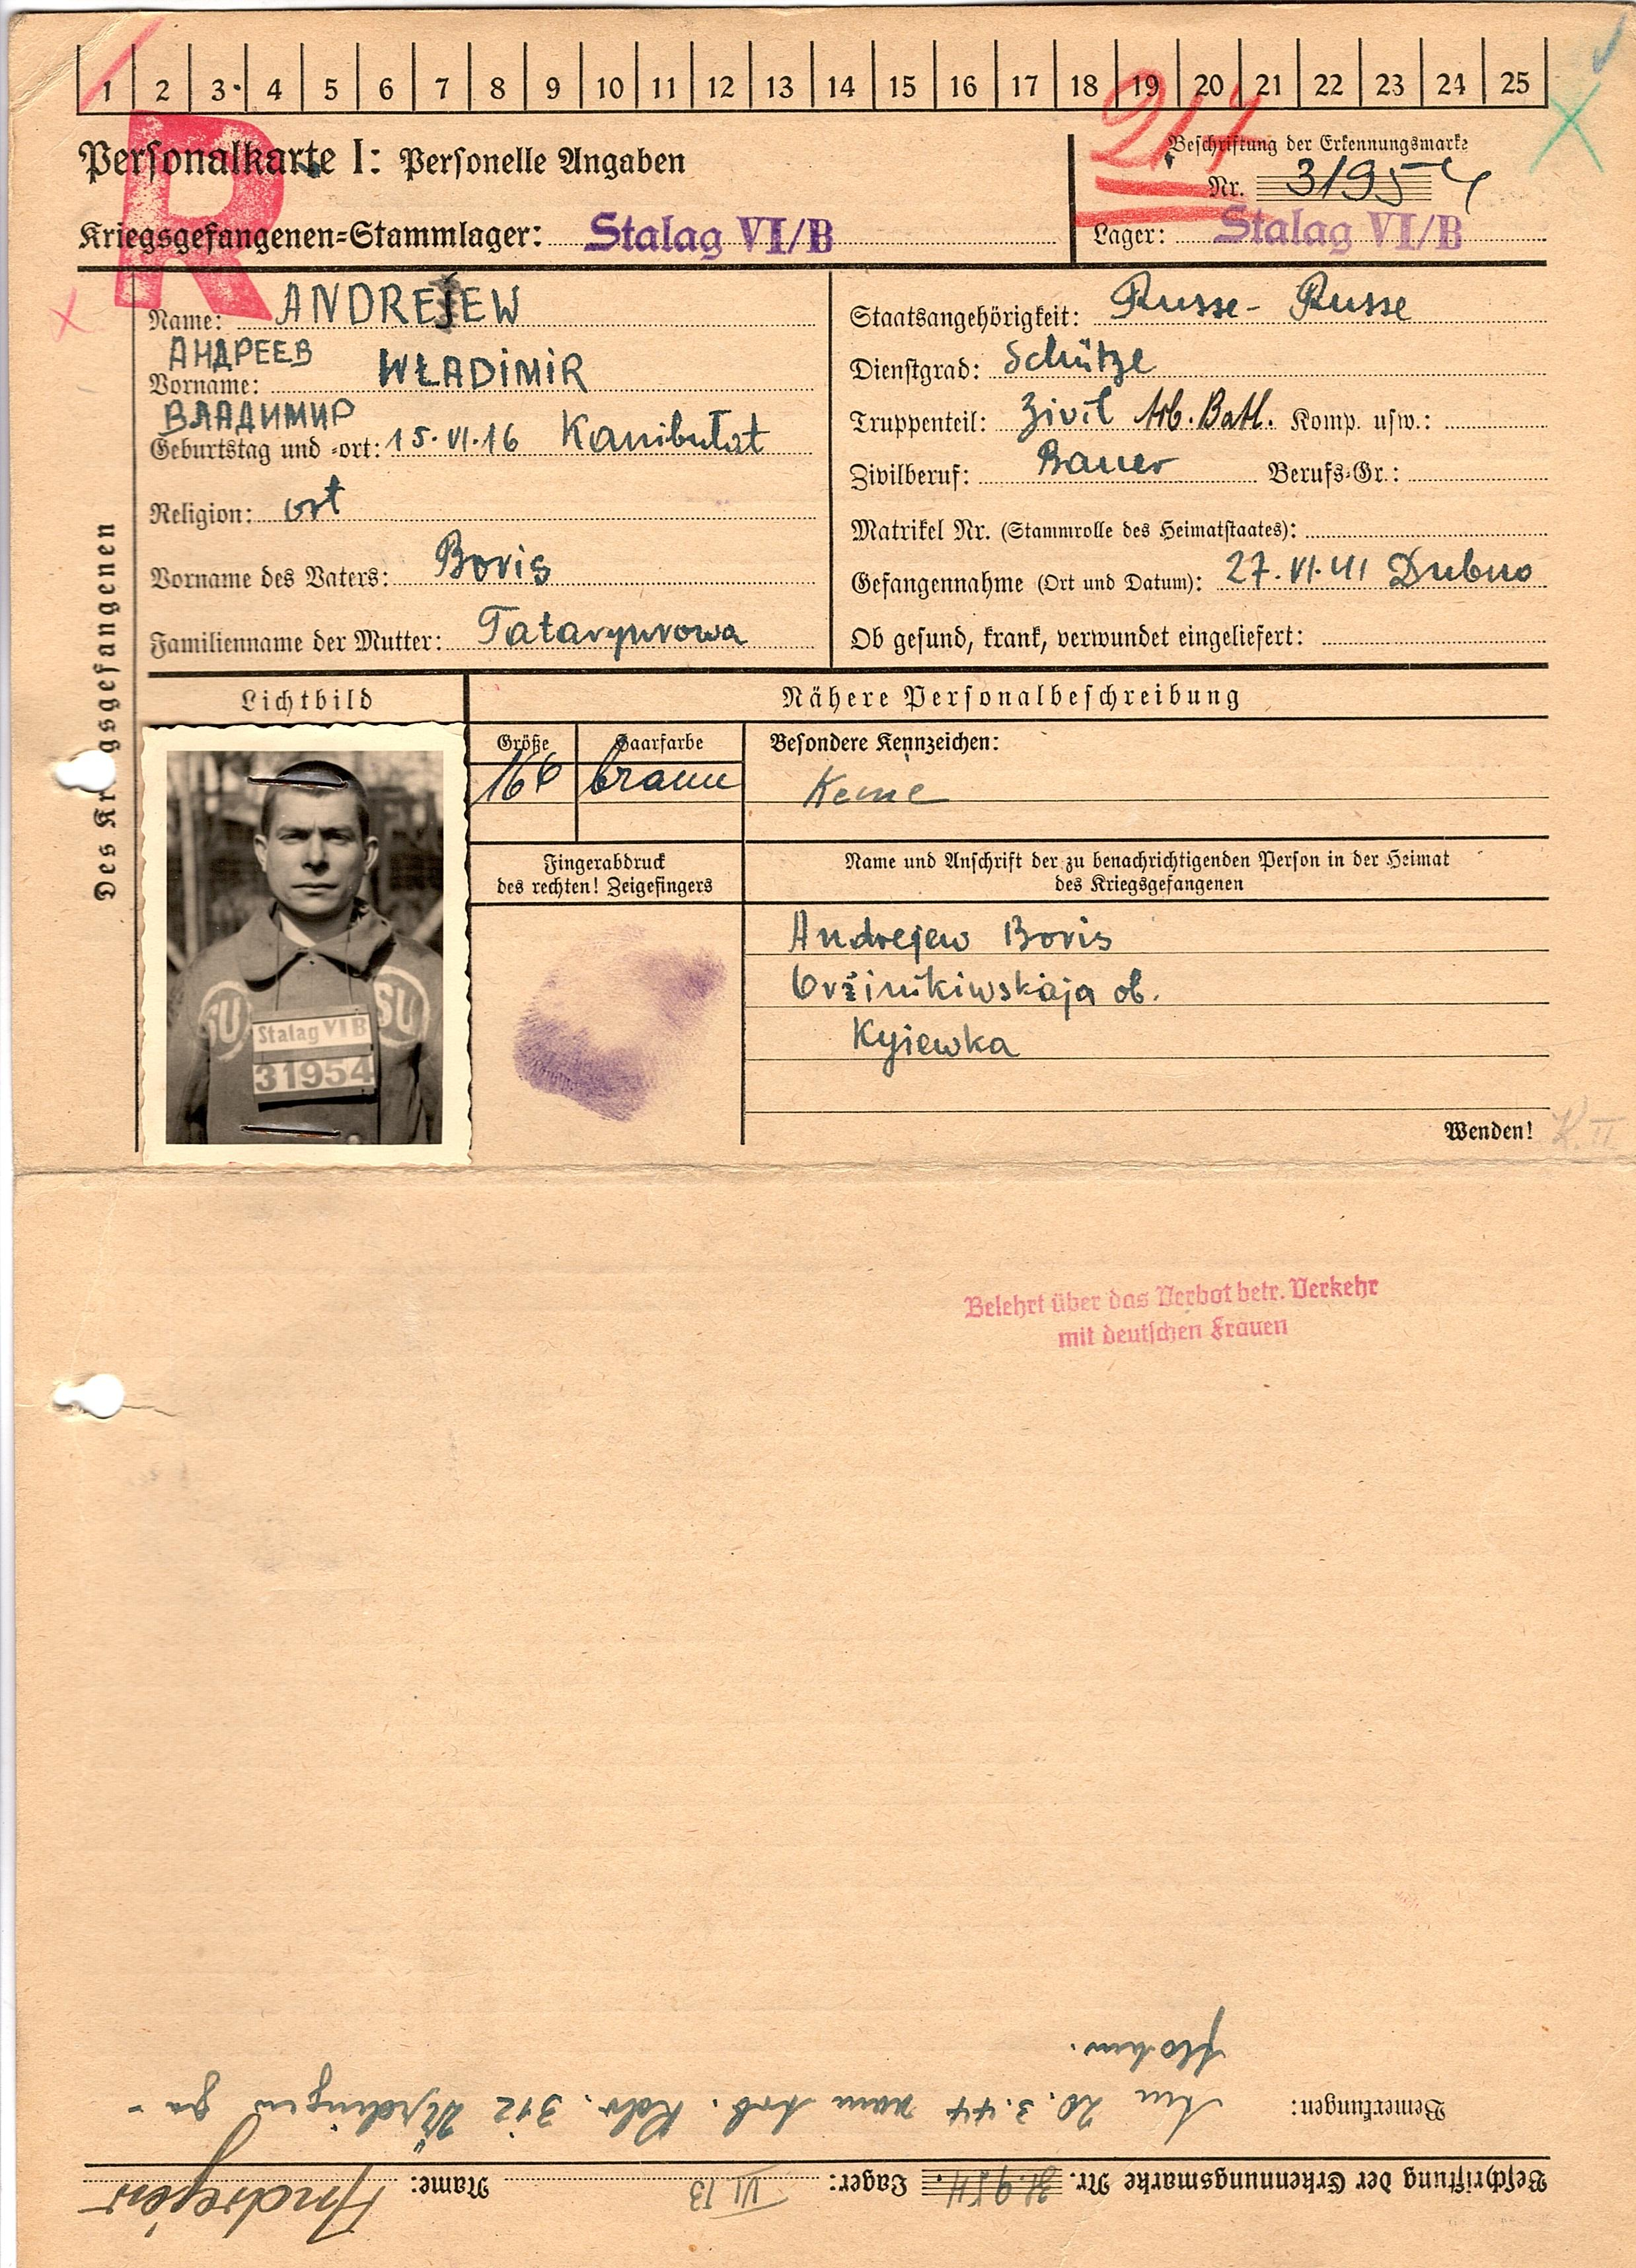 1 2 3 4 5 6 7 8 9 10 11 12 13 14 15 16 17 18 19 20 21 22 23 24 25
R
214
Personalkarte I: Personelle Angaben
Beschriftung der Erkennungsmarke
Nr. 31954
Kriegsgefangenen-Stammlager: Stalag VI/B
Lager: Stalag VI/B
Des Kriegsgefangenen
Name: ANDREJEW
АНДРЕЕВ
Vorname: WŁADIMIR
ВЛАДИМИР
Geburtstag und -ort: 15.VI.16 Kanibułat
Religion: ort
Vorname des Vaters: Boris
Familienname der Mutter:
Staatsangehörigkeit: Russe - Russe
Dienstgrad: Schütze
Truppenteil: Zivil Arb. Batl. Komp. usw.:
Zivilberuf: Bauer Berufs-Gr.:
Matrikel Nr. (Stammrolle des Heimatstaates):
Gefangennahme (Ort und Datum): 27.VI.41 Dubno
Ob gesund, krank, verwundet eingeliefert:
Lichtbild
Nähere Personalbeschreibung
Größe Haarfarbe Besondere Kennzeichen:
166 braun Keine
SU SU
Stalag VI B
31954
Fingerabdruck
des rechten! Zeigefingers
Name und Anschrift der zu benachrichtigenden Person in der Heimat
des Kriegsgefangenen
Andrejew Boris
Oržinikiwskaja ob.
Kyjewka
Wenden!
K. II
Belehrt über das Verbot betr. Verkehr
mit deutschen Frauen
Beschriftung der Erkennungsmarke Nr. 31954. Lager: VI B Name: Andrejew
Bemerkungen: Am 20.3.44 vom Arb. Kdo. 312 Ürdingen ge-
flohen.